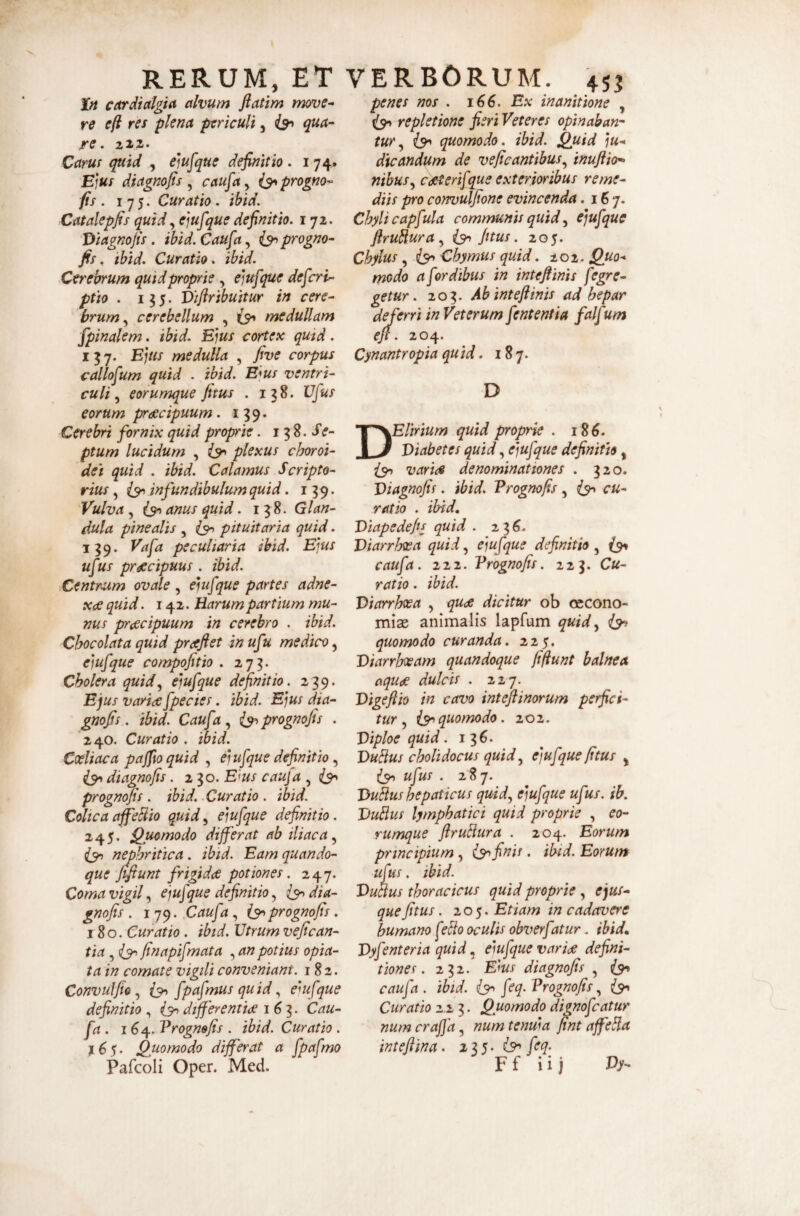 RERUM, ET VERBORUM. 453
In cardialgia alvum ſtatim move-
re eſt res plena periculi, & qua-
re. 222.
Carus quid, ejuſque definitio. 174.
Ejus diagnoſis, cauſa, & progno-
ſis. 175. Curatio. ibid.
Catalepſis quid, ejuſque definitio. 172.
Diagnoſis. ibid. Cauſa, & progno-
ſis. ibid. Curatio. ibid.
Cerebrum quid proprie, ejuſque deſcri-
ptio. 135. Diſtribuitur in cere-
brum, cerebellum, & medullam
ſpinalem. ibid. Ejus cortex quid.
137. Ejus medulla, ſive corpus
calloſum quid. ibid. Ejus ventri-
culi, eorumque ſitus. 138. Uſus
eorum præcipuum. 139.
Cerebri fornix quid proprie. 138. Se-
ptum lucidum, & plexus choroi-
dei quid. ibid. Calamus Scripto-
rius, & infundibulum quid. 139.
Vulva, & anus quid. 138. Glan-
dula pinealis, & pituitaria quid.
139. Vaſa peculiaria ibid. Ejus
uſus præcipuus. ibid.
Centrum ovale, ejuſque partes adne-
xæ quid. 142. Harum partium mu-
nus præcipuum in cerebro. ibid.
Chocolata quid præſtet in uſu medico,
ejuſque compoſitio. 273.
Cholera quid, ejuſque definitio. 239.
Ejus variæ ſpecies. ibid. Ejus dia-
gnoſis. ibid. Cauſa, & prognoſis.
240. Curatio. ibid.
Cœliaca paſſio quid, ejuſque definitio,
& diagnoſis. 230. Ejus cauſa, &
prognoſis. ibid. Curatio. ibid.
Colica affectio quid, ejuſque definitio.
245. Quomodo differat ab iliaca,
& nephritica. ibid. Eam quando-
que ſiſtunt frigidæ potiones. 247.
Coma vigil, ejuſque definitio, & dia-
gnoſis. 179. Cauſa, & prognoſis.
180. Curatio. ibid. Utrum veſican-
tia, & ſinapiſmata, an potius opia-
ta in comate vigili conveniant. 182.
Convulſio, & ſpaſmus quid, ejuſque
definitio, & differentiæ 163. Cau-
ſa. 164. Prognoſis. ibid. Curatio.
165. Quomodo differat a ſpaſmo
Paſcoli Oper. Med.
penes nos. 166. Ex inanitione,
& repletione fieri Veteres opinaban-
tur, & quomodo. ibid. Quid ju-
dicandum de veſicantibus, inuſtio-
nibus, cæteriſque exterioribus reme-
diis pro convulſione evincenda. 167.
Chyli capſula communis quid, ejuſque
ſtructura, & ſitus. 205.
Chylus, & Chymus quid. 202. Quo-
modo a ſordibus in inteſtinis ſegre-
getur. 203. Ab inteſtinis ad hepar
deferri in Veterum ſententia falſum
eſt. 204.
Cynantropia quid. 187.
D
DElirium quid proprie. 186.
Diabetes quid, ejuſque definitio,
& variæ denominationes. 320.
Diagnoſis. ibid. Prognoſis, & cu-
ratio. ibid.
Diapedeſis quid. 236.
Diarrhœa quid, ejuſque definitio, &
cauſa. 222. Prognoſis. 223. Cu-
ratio. ibid.
Diarrhœa, quæ dicitur ob œcono-
miæ animalis lapſum quid, &
quomodo curanda. 225.
Diarrhœam quandoque ſiſtunt balnea
aquæ dulcis. 227.
Digeſtio in cavo inteſtinorum perfici-
tur, & quomodo. 202.
Diploe quid. 136.
Ductus cholidocus quid, ejuſque ſitus,
& uſus. 287.
Ductus hepaticus quid, ejuſque uſus. ib.
Ductus lymphatici quid proprie, eo-
rumque ſtructura. 204. Eorum
principium, & finis. ibid. Eorum
uſus. ibid.
Ductus thoracicus quid proprie, ejuſ-
que ſitus. 205. Etiam in cadavere
humano ſecto oculis obverſatur. ibid.
Dyſenteria quid, ejuſque variæ defini-
tiones. 232. Ejus diagnoſis, &
cauſa. ibid. & ſeq. Prognoſis, &
Curatio 223. Quomodo dignoſcatur
num craſſa, num tenuia ſint affecta
inteſtina. 235. & ſeq.
Ff iij Dy-